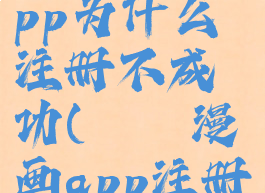 pp为什么
注册不成
功( 漫
画app注册